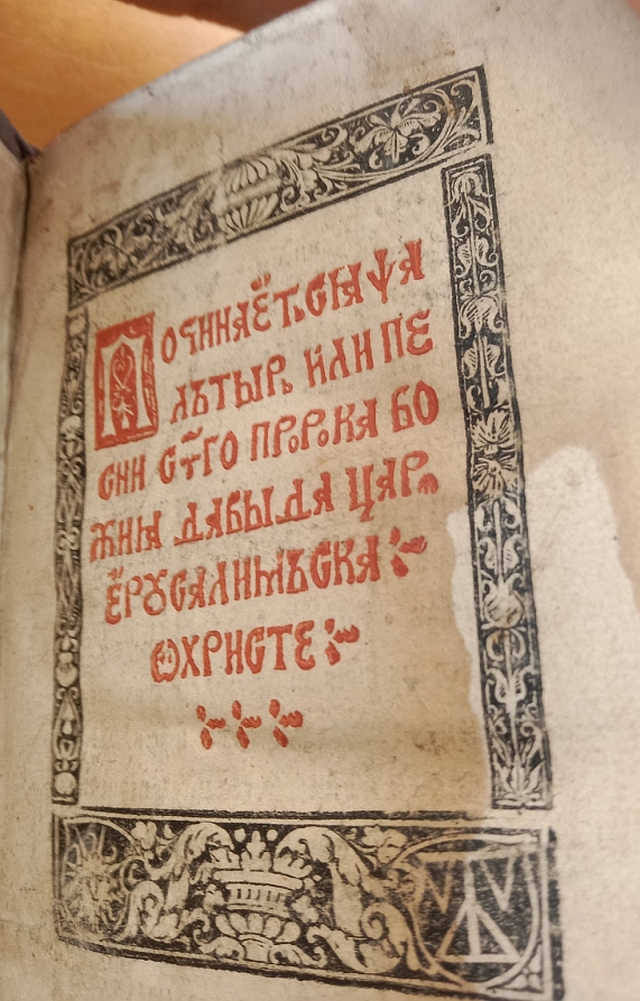 Починаѐтьсѧ ѱа
лътырь или пе
сни ст҃го пророка бо
жиꙗ давыда царѧ
ѐрꙋсалимъска
ѡхристе